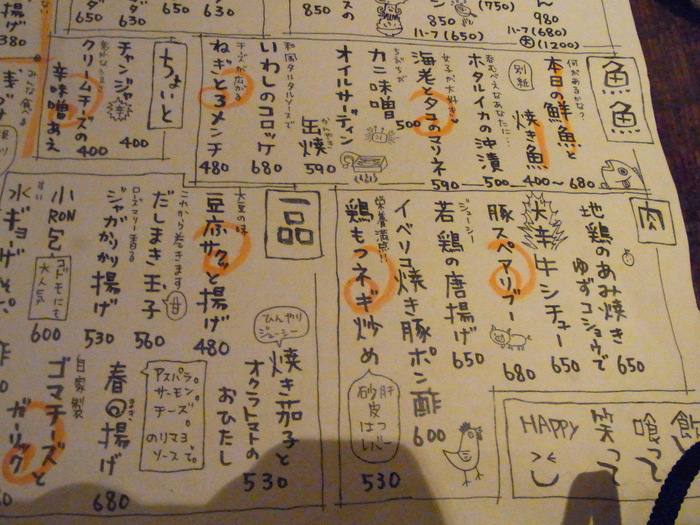 850
850
ハーフ(650)
(750)
980
ハーフ(680)
(大)(1200)
揚げ
380
650
650
630
魚魚
何があるかな?
本日の鮮魚と
別紙
焼き魚
400〜680
呑むべえなあなたに…
ホタルイカの沖漬
500
女子が大好き♡
海老とタコのマリネ
590
ちびちび
カニ味噌
500
オイルサーディン
缶焼
590
和風タルタルソースで
いわしのコロッケ
680
チーズが広がる
ねぎとろメンチ
480
ちょいと
チャンジャ
400
クリームチーズの
辛味噌あえ
400
肉
地鶏のあみ焼き
ゆずコショウで
650
大辛
牛シチュー
650
豚スペアリブー
680
ジューシー
若鶏の唐揚げ
650
イベリコ焼き豚ポン酢
600
栄養満点!!
鶏もつネギ炒め
肝
砂ずり
はつ
レバー
530
一品
大豆の味
豆腐サクっと揚げ
480
これから巻きます
だしまき玉子
甘
560
ローズマリー香る
ジャガかりかり揚げ
530
小RON包
コドモにも
大人気
600
水ギョーザ
ひんやり
ジューシー
焼き茄子と
オクラトマトの
おひたし
530
アスパラ。
サーモン。
チーズ。
のりマヨ
ソースで。
春の揚げ
680
自家製
ゴマチーズと
ガーリック
飲
喰って
笑って
HAPPY